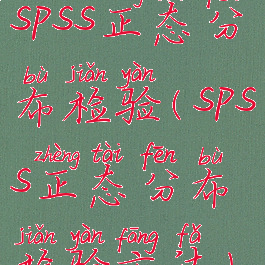 SPSS正态分
bù jiǎn yàn
布检验(SPS
zhèng tài fēn bù
S正态分布
jiǎn yàn fāng fǎ
检验方法)